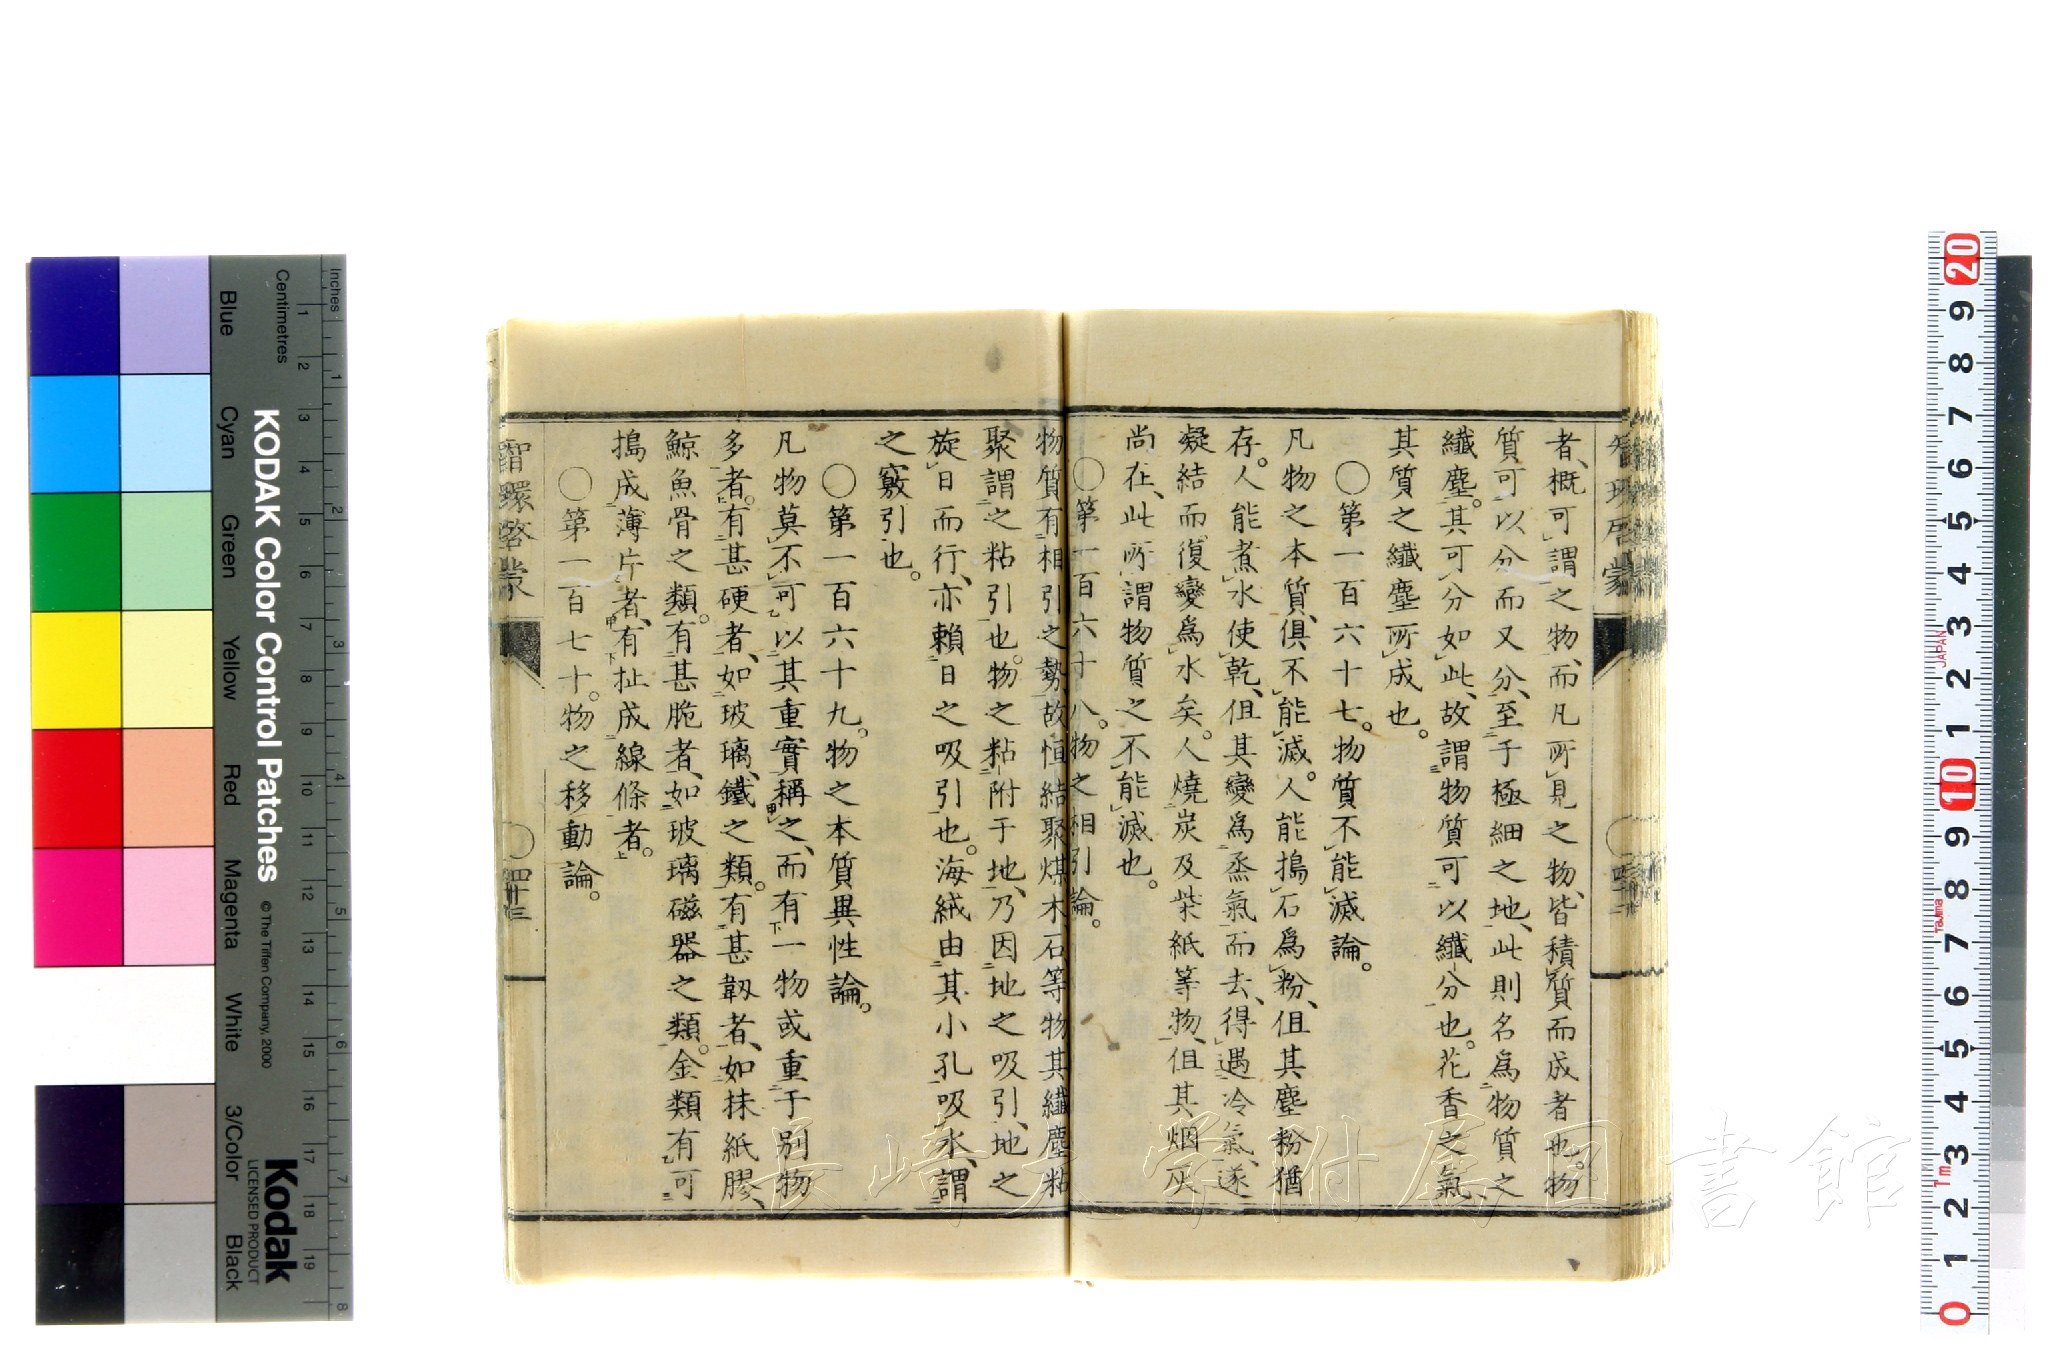 者、概可謂之物、而凡所見之物、皆積質而成者也。物
質可以分而又分、至于極細之地、此則名為物質之
纖塵。其可分如此、故謂物質可以纖分也。花香之氣、
其質之纖塵所成也。
○第一百六十七。物質不能滅論。
凡物之本質、俱不能滅。人能搗石為粉、但其塵粉猶
存。人能煮水使乾、但其變為烝氣而去、得遇冷氣、遂
凝結而復變為水矣。人燒炭及柴紙等物、但其烟灰
尚在、此所謂物質之不能滅也。
○第一百六十八。物之相引論。
物質有相引之勢、故恒結聚、煤木石等物、其纖塵粘
聚、謂之粘引也。物之粘附于地、乃因地之吸引、地之
旋日而行、亦賴日之吸引也。海絨由其小孔吸水、謂
之竅引也。
○第一百六十九。物之本質異性論。
凡物莫不可以其重實稱之、而有一物或重于別物
多者。有甚硬者、如玻璃、鐵之類。有甚韌者、如抹紙膠、
鯨魚骨之類。有甚脆者、如玻璃磁器之類。金類有可
搗成薄片者、有扯成線條者。
○第一百七十。物之移動論。
智環啓蒙
○四十三
智環啓蒙
長崎大学附属図書館
KODAK Color Control Patches
© The Tiffen Company, 2000
Kodak
LICENSED PRODUCT
Inches
Centimetres
Blue
Cyan
Green
Yellow
Red
Magenta
White
3/Color
Black
1 2 3 4 5 6 7 8 9 10 11 12 13 14 15 16 17 18 19
1 2 3 4 5 6 7 8
20 9 8 7 6 5 4 3 2 1 10 9 8 7 6 5 4 3 2 1 0
JAPAN
Tajima
Tm